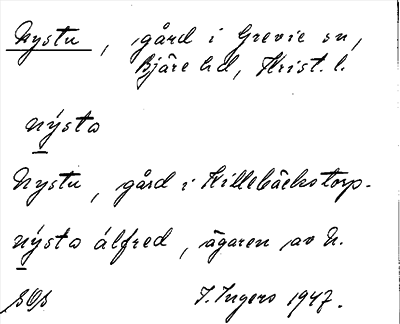 Nystu, gård i Grevie sn,
Bjäre hd, Krist. l.
nýsta
Nystu, gård i Killebäckstorp.
nýsta álfred, ägaren av N.
SOS I. Ingers 1947.